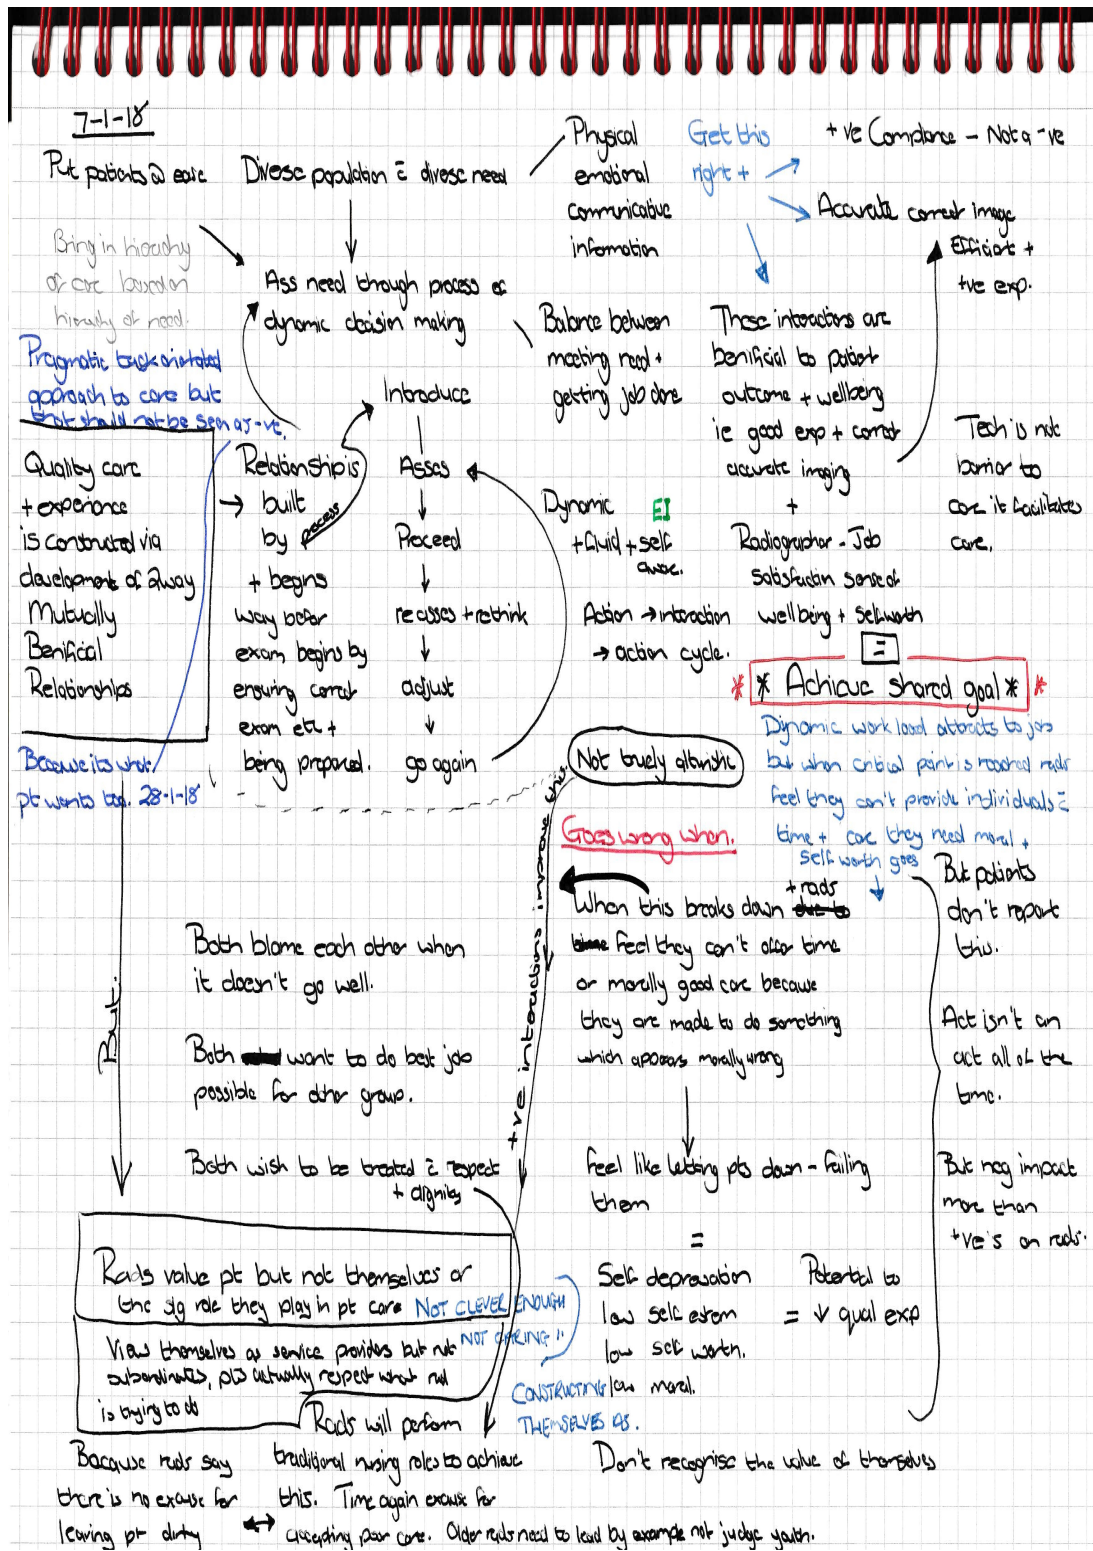 7-1-18
Put patients @ ease
Diverse population c̄ diverse need
Physical
emotional
communicative
information
Get this
right +
+ve Compliance - Not a -ve
Accurate correct image
Efficient +
+ve exp.
Bring in hierachy
of care based on
hierachy of need.
Ass need through process of
dynamic decision making
Balance between
meeting need +
getting job done
These interactions are
benificial to patient
outcome + wellbeing
ie good exp + correct
accurate imaging
+
Radiographer - Job
satisfaction sense of
wellbeing + selfworth
=
* * Achieve shared goal * *
Tech is not
barrier to
care it facilitates
care.
Pragmatic task orientated
approach to care but
that should not be seen as -ve.
Quality care
+ experience
is constructed via
development of 2way
Mutually
Benificial
Relationships
Because its what
pt wants too. 28-1-18
Relationship is
built
by process
+ begins
way befor
exam begins by
ensuring correct
exam etc +
being prepared.
Introduce
Asses
Proceed
reasses + rethink
adjust
go again
Dynamic EI
+ fluid + self
aware.
Action → interaction
→ action cycle.
Not truely altruistic
Dynamic work load attracts to job
but when critical point is reached rads
feel they can't provide individuals c̄
time + care they need moral +
self worth goes
Goes wrong when.
+ rads
When this breaks down due to
time feel they can't offer time
or morally good care because
they are made to do something
which appears morally wrong
But patients
don't report
this.
Act isn't an
act all of the
time.
But neg impact
more than
+ve's on rads.
Built.
+ve interactions improve this
Both blame each other when
it doesn't go well.
Both want to do best job
possible for other group.
Both wish to be treated c̄ respect
+ dignity
Feel like letting pts down - failing
them
=
Self depravation
low self esteem
low self worth.
low moral.
Potential to
= ↓ qual exp
Rads value pt but not themselves or
the sig role they play in pt care
NOT CLEVER ENOUGH
NOT CARING "
CONSTRUCTING
THEMSELVES AS.
View themselves as service providers but not
subordinates, pts actually respect what rad
is trying to do
Rads will perform
traditional nursing roles to achieve
this. Time again excuse for
accepting poor care. Older rads need to lead by example not judge youth.
Because rads say
there is no excuse for
leaving pt dirty ↔
Don't recognise the value of themselves